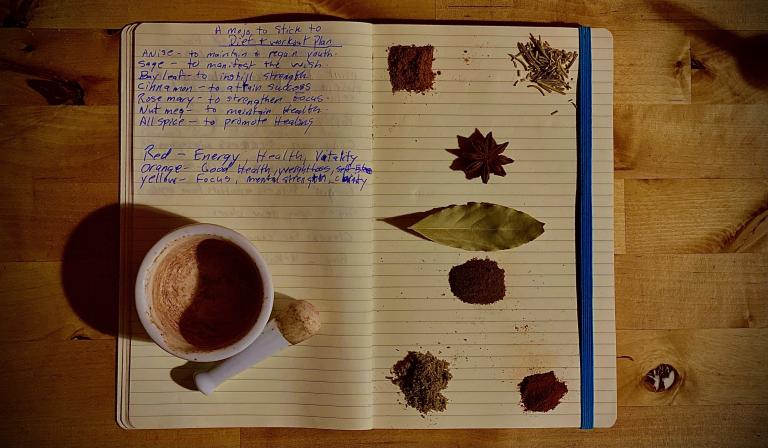 A mojo to stick to
Diet + workout Plan
Anise - to maintain + regain youth.
Sage - to manifest the wish.
Bay leaf - to instill strength
Cinnamon - to attain success
Rosemary - to strengthen focus.
Nutmeg - to maintain Health.
Allspice - to promote Healing
Red - Energy, Health, Vitality
Orange - Good Health, weightloss,
Yellow - Focus, mental strength, clarity